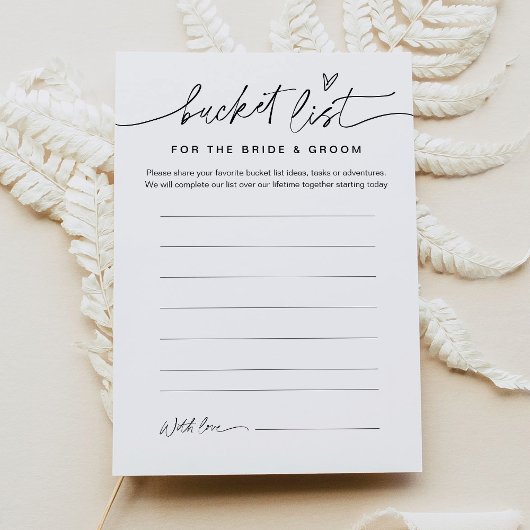 bucket list
FOR THE BRIDE & GROOM
Please share your favorite bucket list ideas, tasks or adventures.
We will complete our list over our lifetime together starting today
With love